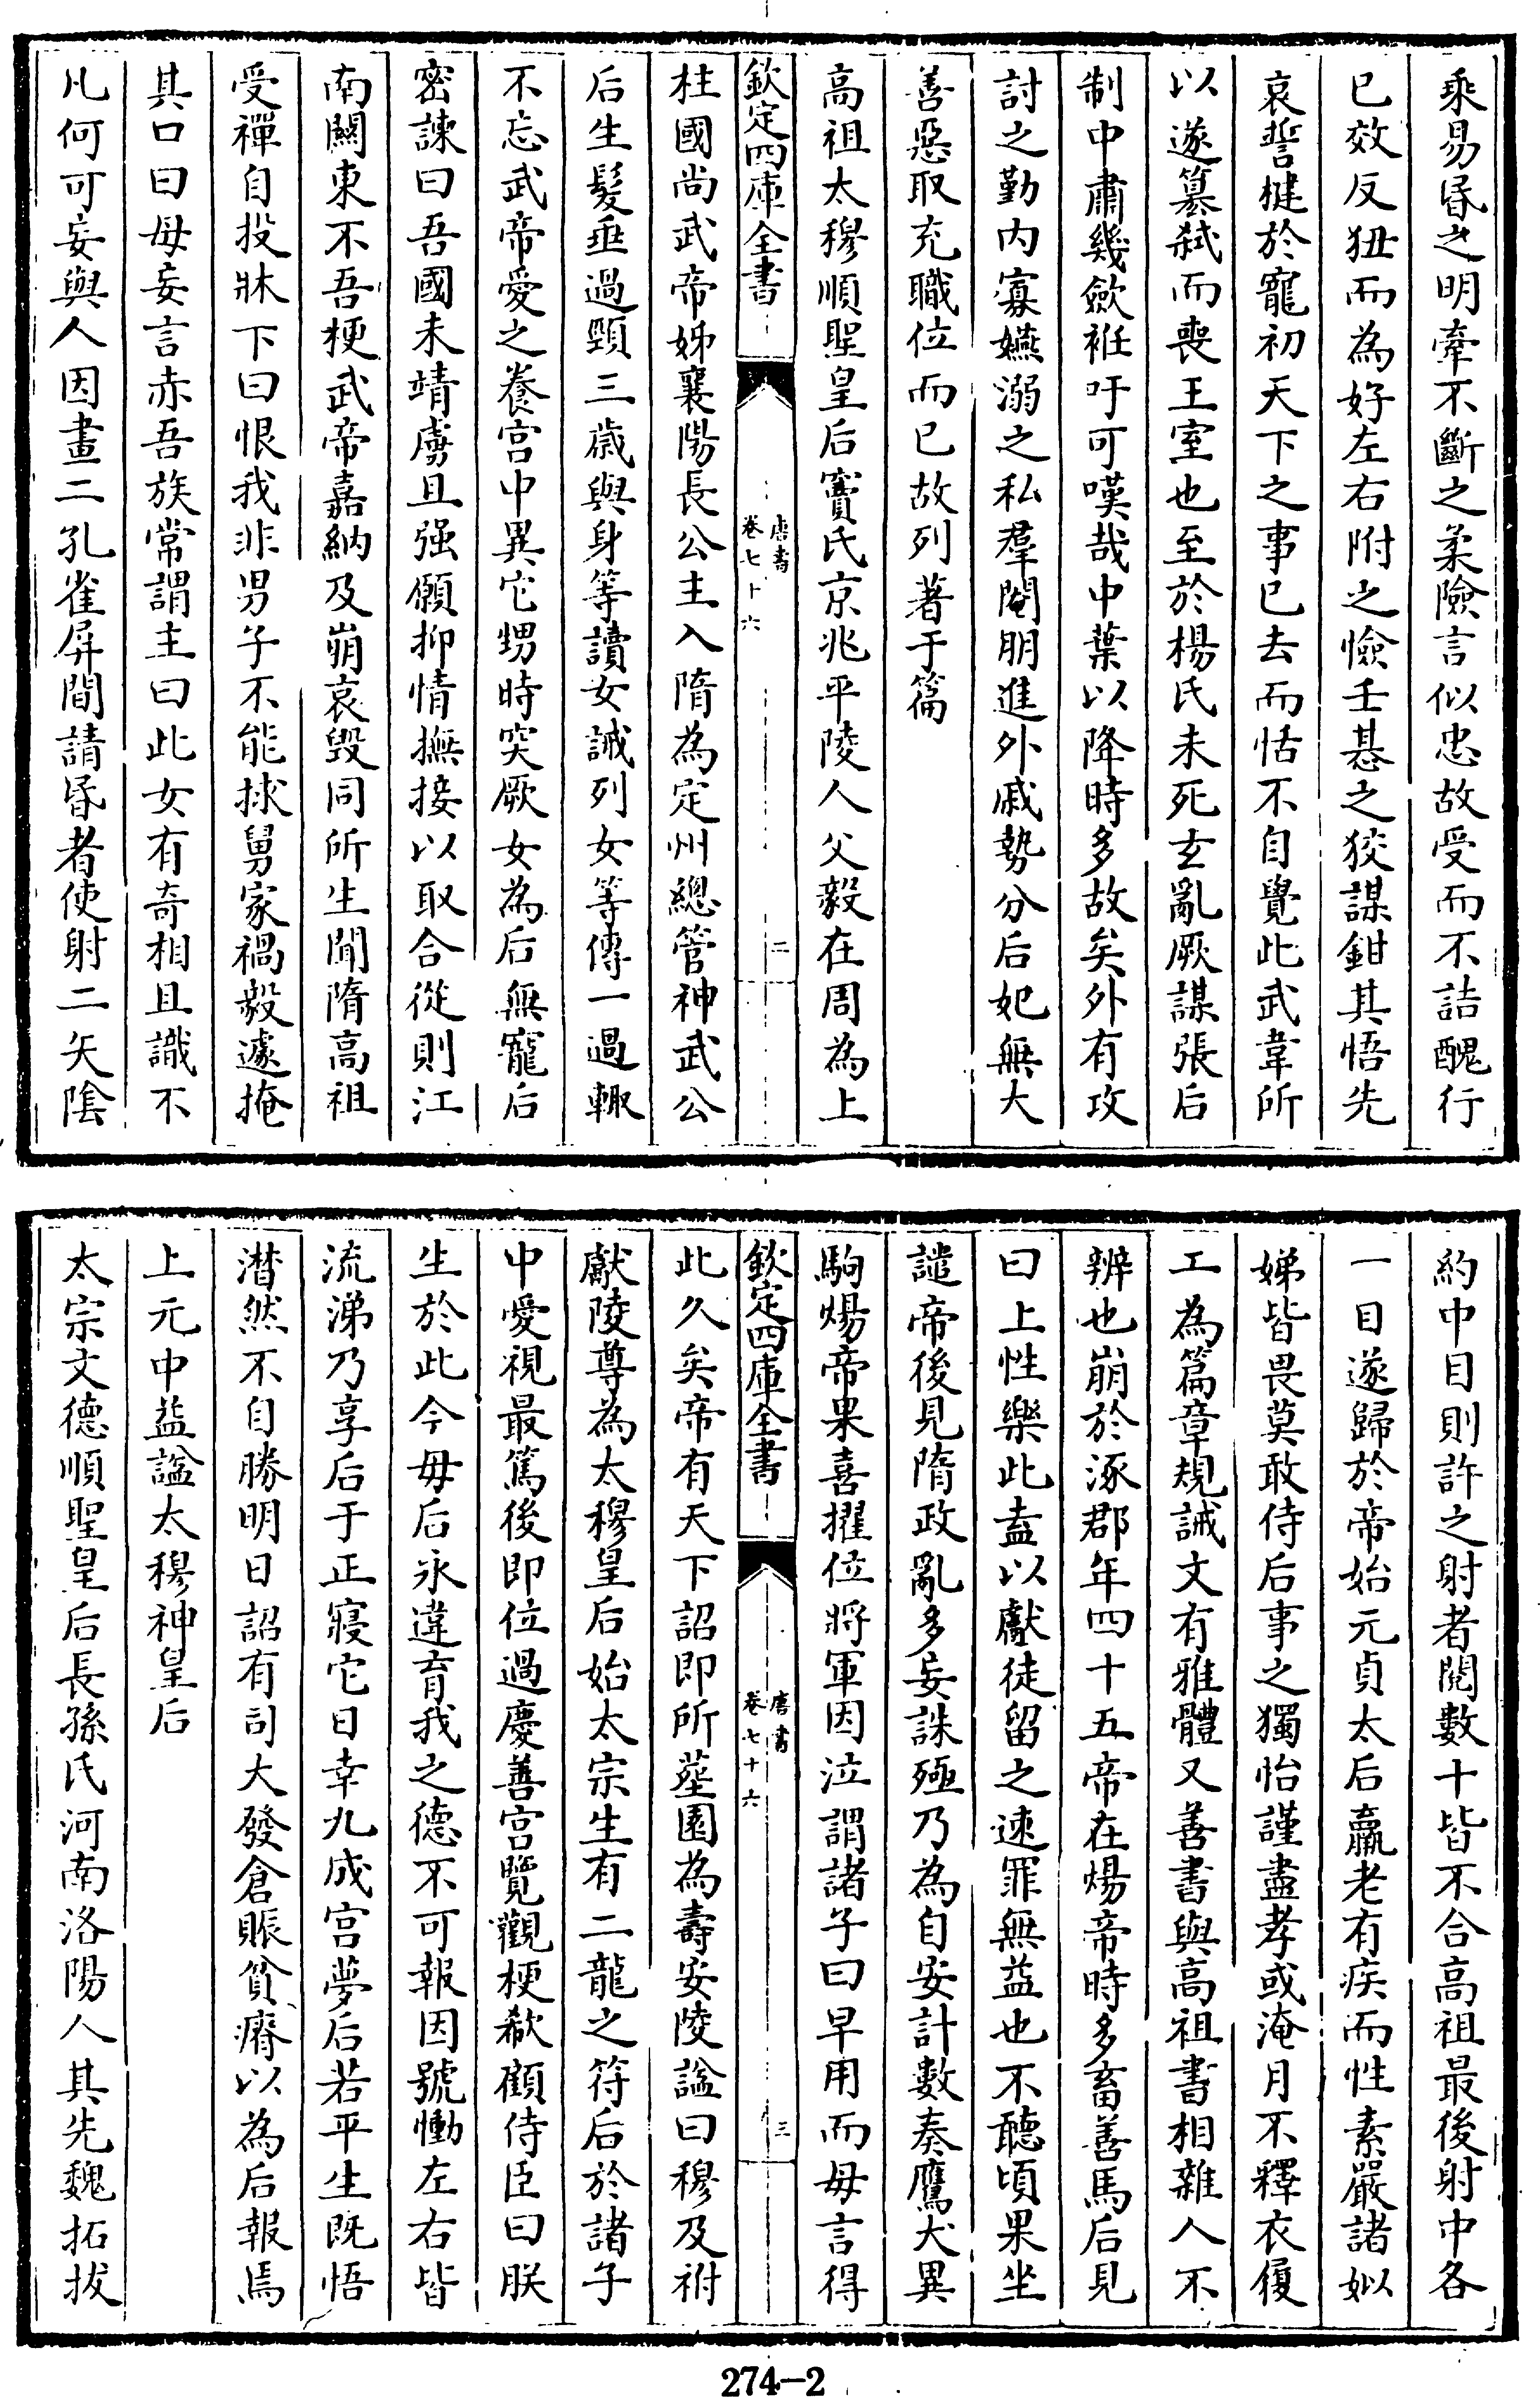 乘易昬之明牽不斷之柔險言似忠故受而不詰醜行
已效反狃而為好左右附之憸壬惎之狡謀鉗其悟先
哀誓揵於寵初天下之事已去而恬不自覺此武韋所
以遂簒弑而喪王室也至於楊氏未死玄亂厥謀張后
制中肅幾斂袵吁可嘆哉中葉以降時多故矣外有攻
討之勤内寡嬿溺之私羣閹朋進外戚勢分后妃無大
善惡取充職位而已故列著于篇
高祖太穆順聖皇后竇氏京兆平陵人父毅在周為上
欽定四庫全書
唐書
卷七十六
二
柱國尚武帝姊襄陽長公主入隋為定州總管神武公
后生髮垂過頸三歳與身等讀女誡列女等傳一過輙
不忘武帝愛之養宫中異它甥時突厥女為后無寵后
密諫曰吾國未靖虜且强願抑情撫接以取合從則江
南關東不吾梗武帝嘉納及崩哀毁同所生聞隋高祖
受禪自投牀下曰恨我非男子不能捄舅家禍毅遽掩
其口曰毋妄言赤吾族常謂主曰此女有奇相且識不
凡何可妄與人因畫二孔雀屏間請昬者使射二矢陰
約中目則許之射者閱數十皆不合高祖最後射中各
一目遂歸於帝始元貞太后羸老有疾而性素嚴諸姒
娣皆畏莫敢侍后事之獨怡謹盡孝或淹月不釋衣履
工為篇章規誡文有雅體又善書與高祖書相雜人不
辨也崩於涿郡年四十五帝在煬帝時多畜善馬后見
曰上性樂此盍以獻徒留之速罪無益也不聽頃果坐
譴帝後見隋政亂多妄誅殛乃為自安計數奏鷹犬異
駒煬帝果喜擢位將軍因泣謂諸子曰早用而母言得
欽定四庫全書
唐書
卷七十六
三
此久矣帝有天下詔即所塟園為壽安陵諡曰穆及祔
獻陵尊為太穆皇后始太宗生有二龍之符后於諸子
中愛視最篤後即位過慶善宫覽觀梗欷顧侍臣曰朕
生於此今毋后永違育我之德不可報因號慟左右皆
流涕乃享后于正寢它日幸九成宫夢后若平生既悟
潸然不自勝明日詔有司大發倉賑貧瘠以為后報焉
上元中益諡太穆神皇后
太宗文德順聖皇后長孫氏河南洛陽人其先魏拓拔
274-2